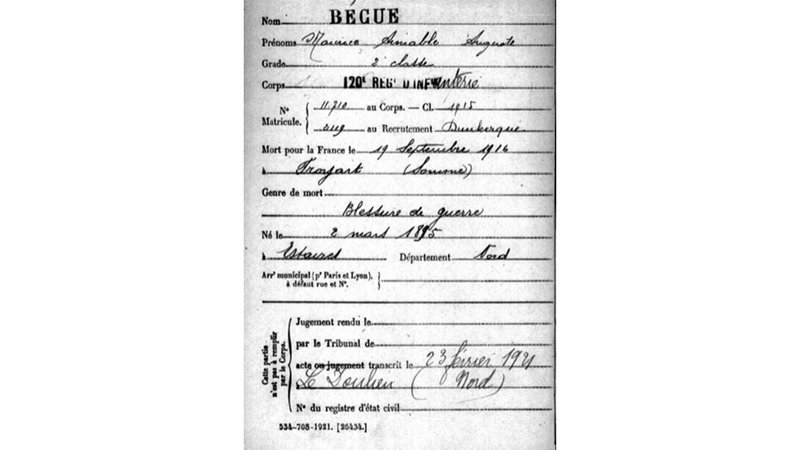 Nom BÈGUE
Prénoms Maurice Aimable Auguste
Grade 2e classe
Corps 120e REGt D'INFanterie
No Matricule. 11.710 au Corps. — Cl. 1915
au Recrutement Dunkerque
Mort pour la France le 19 Septembre 1916
à (Somme)
Genre de mort
Blessure de guerre
Né le 2 mars 1895
à Estaires Département Nord
Arrt municipal (pr Paris et Lyon), à défaut rue et No.
Cette partie n'est pas à remplir par le Corps.
Jugement rendu le
par le Tribunal de
acte ou jugement transcrit le 23 février 1921
à Le Doulieu (Nord)
No du registre d'état civil
534-708-1921. [26434.]